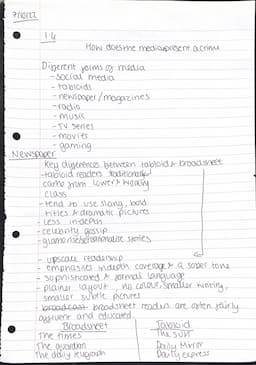 7/10/22
1.4
How does the media present a crime
Different forms of media
- social media
- tabloids
- newspaper/magazines
- radio
- music
- TV series
- movies
- gaming
Newspaper
Key differences between tabloid & broadsheet
- tabloid readers traditionally
came from lower & working
class
- tend to use slang, bold
titles & dramatic pictures
- less indepth
- celebrity gossip
- glamorise/sensationalise stories
- upscale readership
- emphasises indepth coverage & a sober tone
- sophisticated & formal language
- plainer layout, no colour, smaller writing,
smaller subtle pictures
- broadcast broadsheet readers are often fairly
affluent and educated
Broadsheet Tabloid
The times The sun
The guardian Daily Mirror
The daily telegraph Daily express